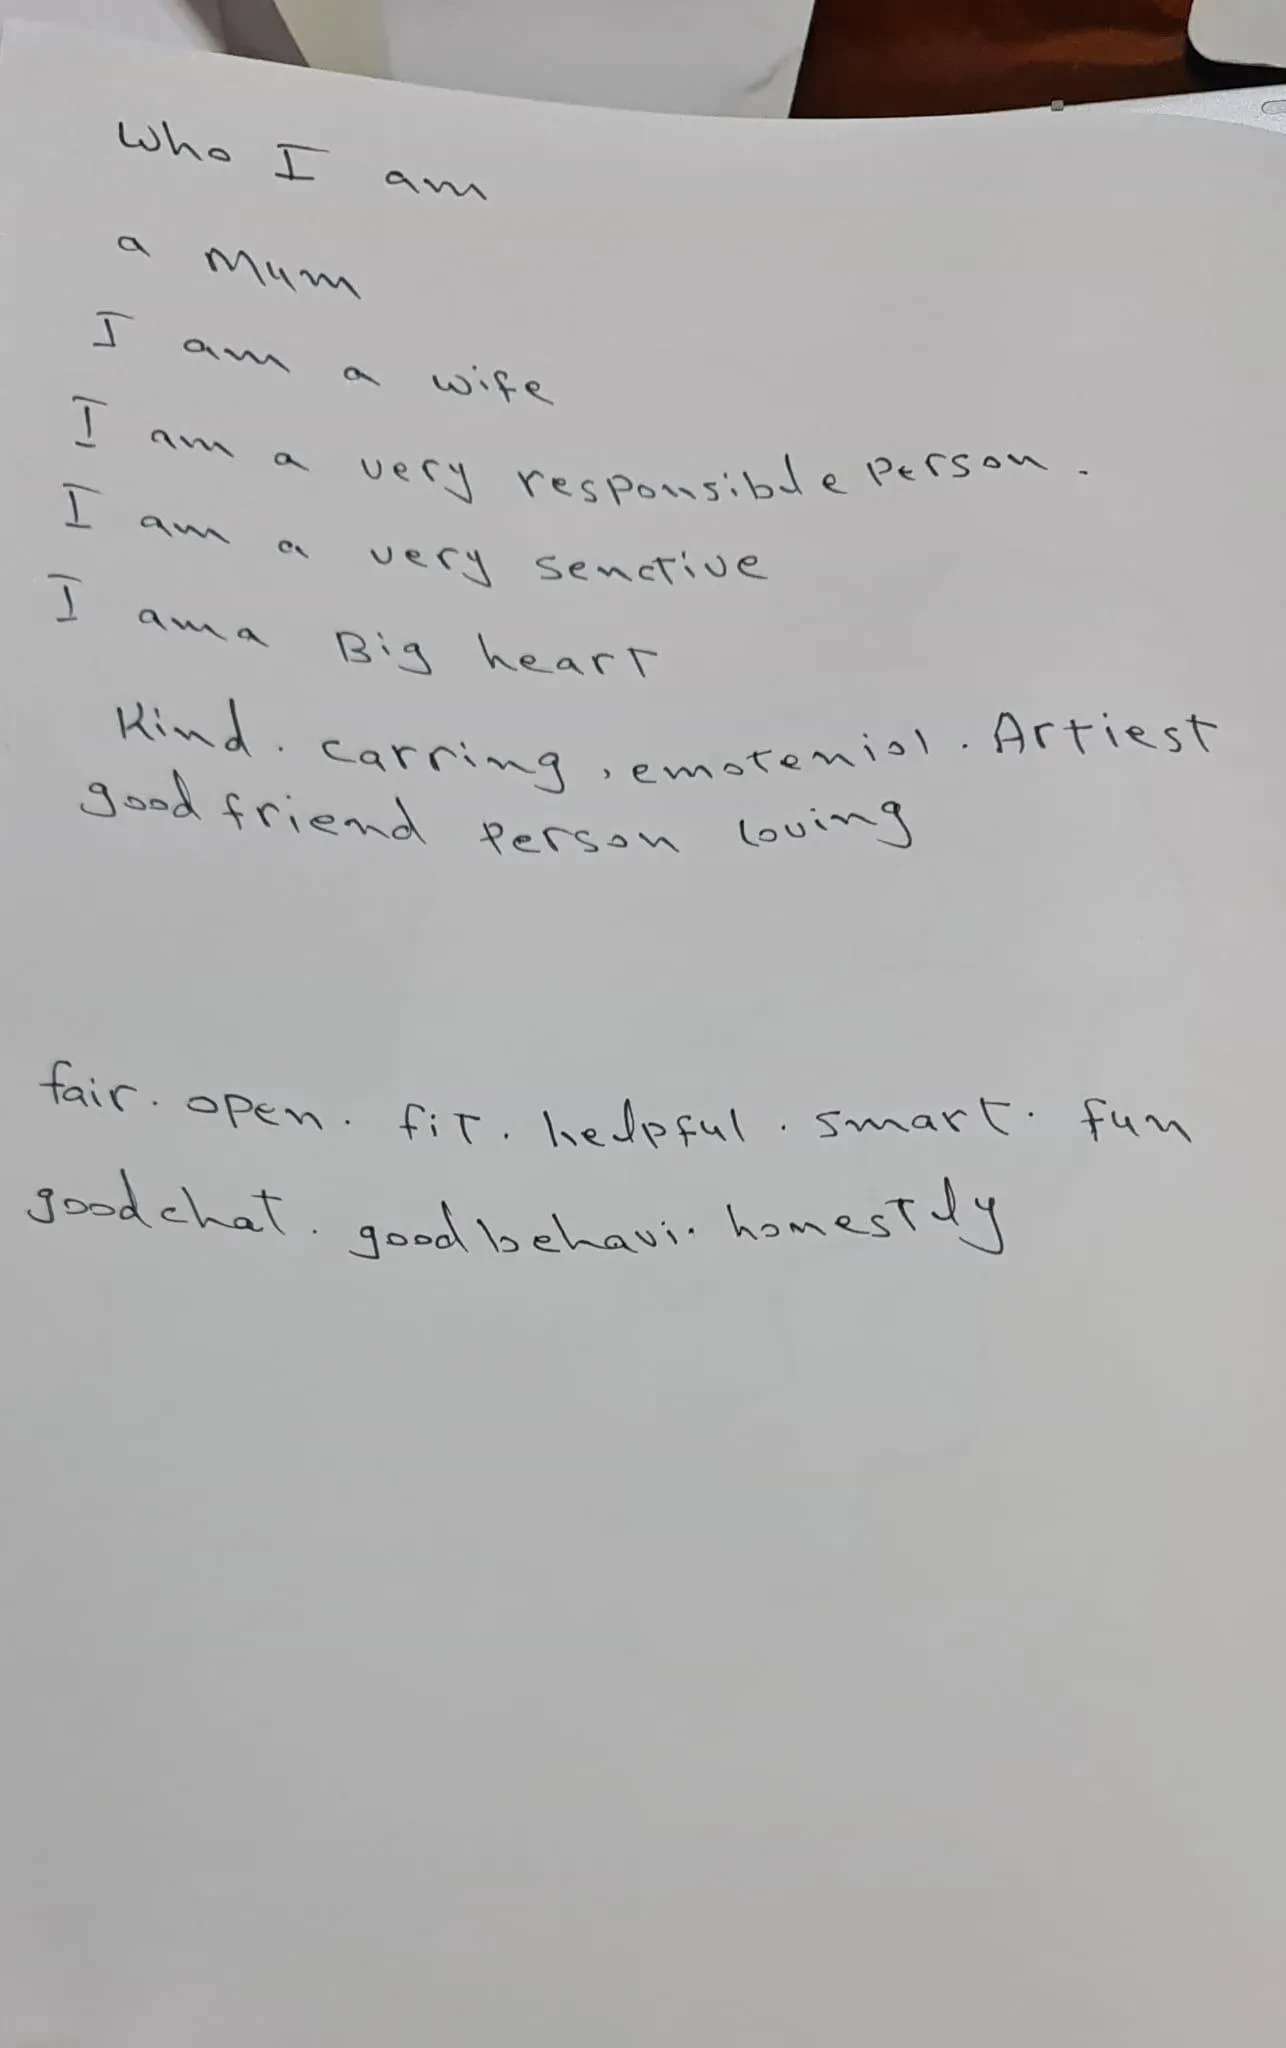 Who I am
a Mum
I am a wife
I am a very responsible Person.
I am a very senctive
I am a Big heart
Kind. carring, emotenial. Artiest
good friend Person loving
fair. open. fit. helpful. smart. fun
good chat. good behavi. homestly